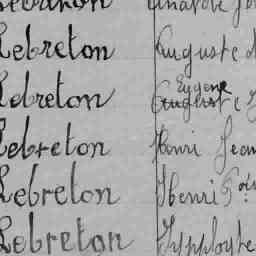 Lebreton Anatole
Lebreton Auguste
Eugene
Lebreton Auguste
Lebreton Henri Jean
Lebreton Henri
Lebreton Hyppolyte